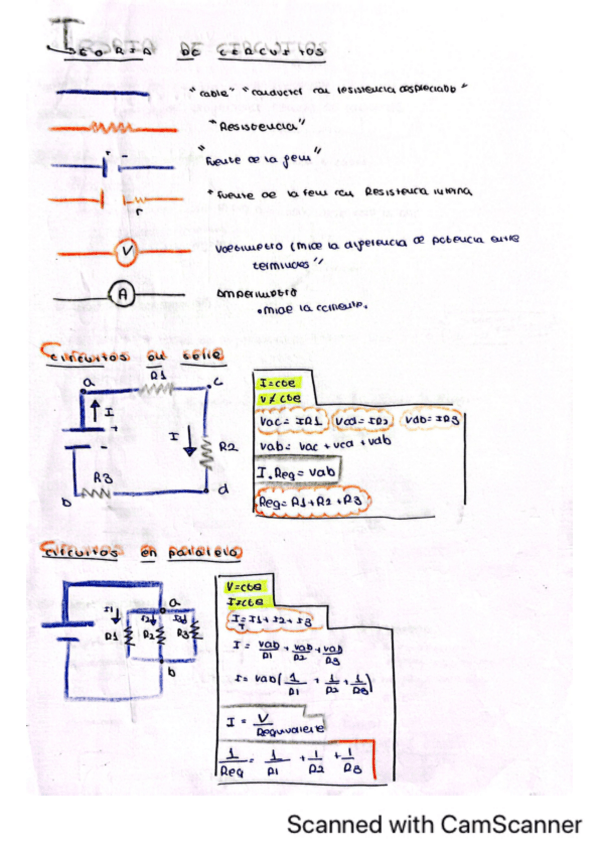 TEORIA DE CIRCUITOS
"cable" "conductor con resistencia despreciable"
"Resistencia"
+ -
"Fuente de la fem"
"Fuente de la fem con Resistencia interna
r
V
Voltimetro (mide la diferencia de potencia entre
terminales"
A
Amperimetro
•mide la corriente.
Circuitos en serie
a
R1
c
I
+
-
I
R2
R3
b
d
I=cte
V≠cte
Vac= IR1 Vcd=IR2 Vdb=IR3
Vab= Vac + Vcd + Vdb
I.Req = Vab
Req= R1+R2+R3
Circuitos en paralelo
a
I1 I2 I3
R1 R2 R3
b
-
V=cte
I≠cte
IT=I1+I2+I3
I = Vab/R1 + Vab/R2 + Vab/R3
I= Vab(1/R1 + 1/R2 + 1/R3)
I = V/Requivalente
1/Req = 1/R1 + 1/R2 + 1/R3
Scanned with CamScanner